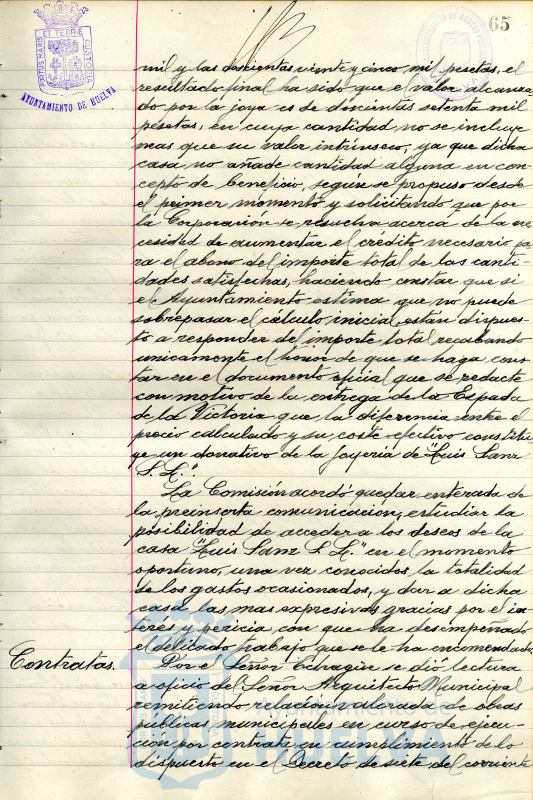 65
PORTUS MARIS ET TERRAE CUSTODIA
AYUNTAMIENTO DE HUELVA
mil y las doscientas veinte y cinco mil pesetas, el
resultado final ha sido que el valor alcanza-
do por la joya es de doscientas setenta mil
pesetas, en cuya cantidad no se incluye
mas que su valor intrínseco, ya que dicha
casa no añade cantidad alguna en con-
cepto de beneficio, según se propuso desde
el primer momento y solicitando que por
la Corporación se resuelva acerca de la ne-
cesidad de aumentar el crédito necesario pa-
ra el abono del importe total de las canti-
dades satisfechas, haciendo constar que si
el Ayuntamiento estima que no puede
sobrepasar el cálculo inicial, están dispues-
to a responder del importe total recabando
unicamente el honor de que se haga cons-
tar en el documento oficial que se redacte
con motivo de la entrega de la Espada
de la Victoria que la diferencia entre el
precio calculado y su coste efectivo constitu-
ye un donativo de la joyería de "Luis Sanz
S. L.".
La Comisión acordó quedar enterada de
la preinserta comunicación, estudiar la
posibilidad de acceder a los deseos de la
casa "Luis Sanz S. L." en el momento
oportuno, una vez conocidos la totalidad
de los gastos ocasionados, y dar a dicha
casa las mas expresivas gracias por el in-
terés y pericia con que ha desempeñado
el delicado trabajo que se le ha encomendado.
Contratas. Por el Señor Echagüe se dió lectura
a oficio del Señor Arquitecto Municipal
remitiendo relación valorada de obras
públicas municipales en curso de ejecu-
ción por contrata en cumplimiento de lo
dispuesto en el Decreto de siete del corriente
Ayuntamiento de
HUELVA